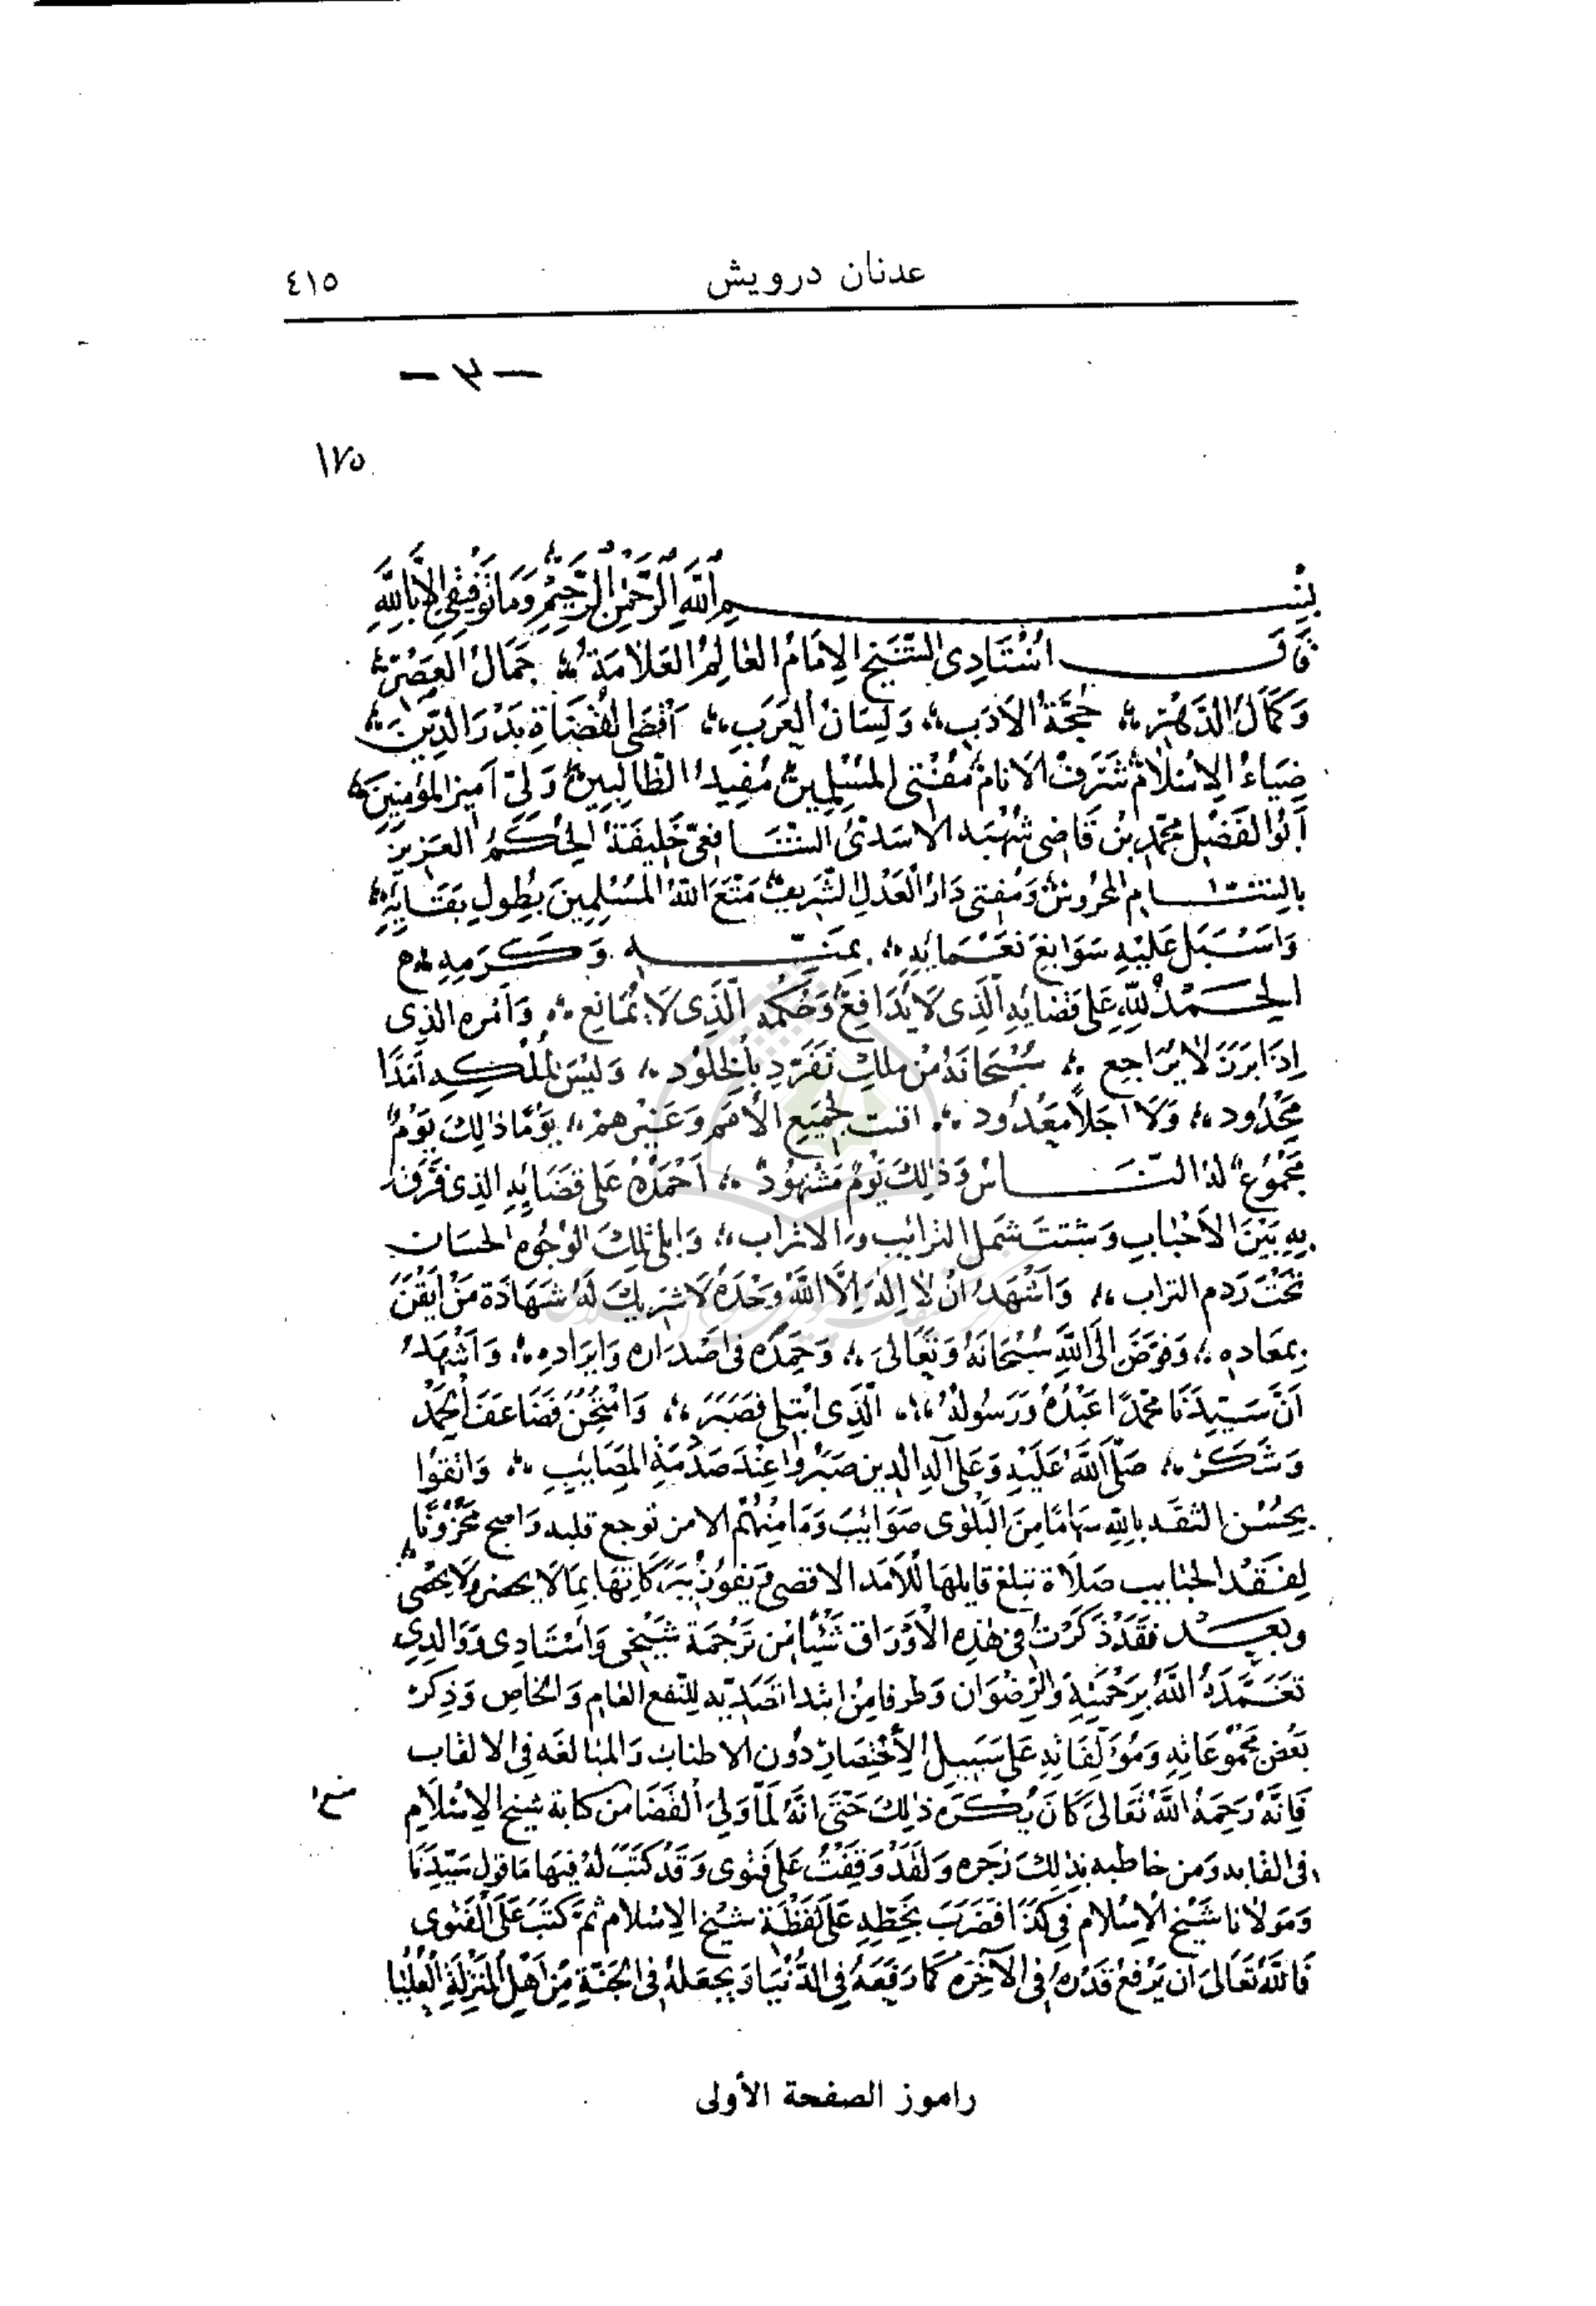 عدنان درويش
٤١٥
— ٣ —
١٧٥
بِسْمِ اللَّهِ الرَّحْمٰنِ الرَّحِيمِ وَمَا تَوْفِيقِي إِلَّا بِاللَّهِ
قَالَ اسْتَادِى الشَّيْخ الاِمَامُ العَالِمُ العَلَّامَةُ جَمَالُ العَصْرِ
وَكَمَالُ الدَّهْرِ حُجَّةُ الأَدَبِ وَلِسَانُ العَرَبِ اَقْضَى القُضَاةِ بَدْرُ الدِّينَ
ضِيَاءُ الاِسْلَامِ شَرَفُ الانَامِ مُفْتِى المُسْلِمِينَ مُفِيدُ الطَّالِبِينَ وَلِيّ اَمِيرِ المُؤْمِنِينَ
اَبُو الفَضْلِ مُحَمَّدِ بْنُ قَاضِى شُهْبَه الاسَدىُّ الشَّافِعِىّ خَلِيفَةُ الحُكْمِ العَزِيزِ
بِالشَّامِ المَحْرُوسِ وَمُفْتِى دَارُ العَدْلِ الشَّرِيفِ مَتَّعَ اللَّهُ المُسْلِمِينَ بِطُولِ بَقَائِهِ
وَاَسْبَلَ عَلَيْهِ سَوَابِغَ نَعْمَائِهِ بِمَنِّهِ وَكَرَمِهِ
الحَمْدُ لِلَّهِ عَلَى قَضَائِهِ الَّذِى لَا يُدَافِعُ وَحُكْمِهِ الَّذِى لَا يُمَانِع وَاَمْرِهِ الذِى
اِذَا بَرَزَ لَا يُرَاجِع سُبْحَانَهُ مِنْ مَلِكٍ تَفَرَّدَ بِالخُلُود وَلَيْسَ لِمُلْكِهِ اَمَدًا
مَحْدُود وَلَا اَجَلاً مَعْدُود لِجَمِيعِ الأُمَمِ وَغَيْرِهِمْ يَوْمًا ذَلِكَ يَوْمٌ
مَجْمُوعٌ لَهُ النَّاسُ وَذَلِكَ يَوْمٌ مَشْهُودٌ اَحْمَدُهُ عَلَى قَضَائِهِ الذِى فَرَّقَ
بِهِ بَيْنَ الأَحْبَابِ وَشَتَّتَ شَمْلَ الترائب والاتراب وَابلى تِلكَ الوُجُوهِ الحسَان
تَحْتَ رَدم التراب وَاَشْهَدُ اَنْ لَا اِلٰهَ اِلَّا اللَّهُ وَحْدَهُ لَا شَرِيكَ لَهُ شَهَادَة مَنْ اَيْقَنَ
بِمَعَادِهِ وَفَوَّضَ اِلَى اللَّهِ سُبْحَانَهُ وَتَعَالَى وَحَمِدَهُ فى اِصْدَارِهِ وَايرَادِهِ وَاَشْهَدُ
اَنَّ سَيِّدَنَا مُحَمَّدًا عَبْدُهُ وَرَسُولُهُ الَّذِى ابْتُلِى فَصَبَرَ وَامْتُحِنَ فَضَاعَفَ الحَمْدُ
وَشَكَرَ صَلَّى اللَّهُ عَلَيْهِ وَعَلَى آلِهِ الذِين صَبَرُوا عِنْدَ صَدْمَةِ المَصَايِبِ وَاتقَوْا
بِحُسْنِ الثقَه بِاللّهِ سِهَامًا مِنَ البَلْوَى صَوَايِبَ وَمَا مِنْهُمْ الا من توجع قلبه وَاصبح مَحْزُونًا
لِفَقْدِ الحبَايِب صَلَاة تبلغ قايلهَا لِلأَمَد الاقصى وَيَفُوزُ بِبَرَكَاتِهَا بِمَا لَا يحصر وَلَا يُحْصَى
وَبَعْد فَقَدْ ذَكَرْتُ فِى هٰذِهِ الأَوْرَاق شَيْئًا مِن تَرْجَمَة شَيْخِى وَأُسْتَادِى وَوَالِدِى
تَغَمَّدَهُ اللَّهُ بِرَحْمَتِهِ وَالرِّضْوَان وَطرفا مِن ابْتدا تَصَدّيه للنَّفع العَام وَالخَاصِ وَذِكرِ
بَعْضِ مَجْمُوعَاتِهِ وَمُؤَلَّفَاتِهِ عَلَى سَبِيلِ الأِخْتِصَارِ دُونِ الاطناب وَالمبالغه فِى الالقاب
فَاِنَّهُ رَحِمَهُ اللَّهُ تَعَالَى كَانَ يُكْرَهُ ذٰلِكَ حَتَّى اَنَّهُ لَمَّا وَلِىَ القَضَا من كتابة شيخ الاِسْلَامِ
فى القابه وَمن خاطبه بِذٰلِكَ زَجَرَه وَلَقَدْ وَقَفْتُ عَلَى فَتْوَى وَقَدْ كَتَبَ لَهُ فِيهَا مَا قَول سَيِّدَنَا
وَمَوْلَانَا شَيْخِ الاِسْلَام فِى كَذَا فَضَرَبَ بِخَطِّهِ عَلَى لَفْظَة شَيْخ الاِسْلَام ثُمَّ كَتَبَ عَلَى الفَتْوى
فَاللَّهُ تَعَالَى اَن يَرْفَعَ قَدْرَهُ فِى الآخِرَه كَمَا رَفَعَهُ فِى الدُّنْيَا وَيَجعَلَهُ فِى الجَنَّةِ مِنْ اَهْلِ المَنْزِلَةِ العُلْيَا
راموز الصفحة الأولى